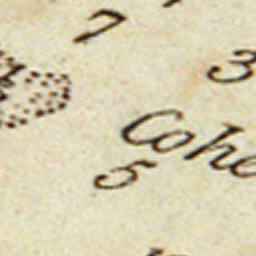 7
3
Cohe
5